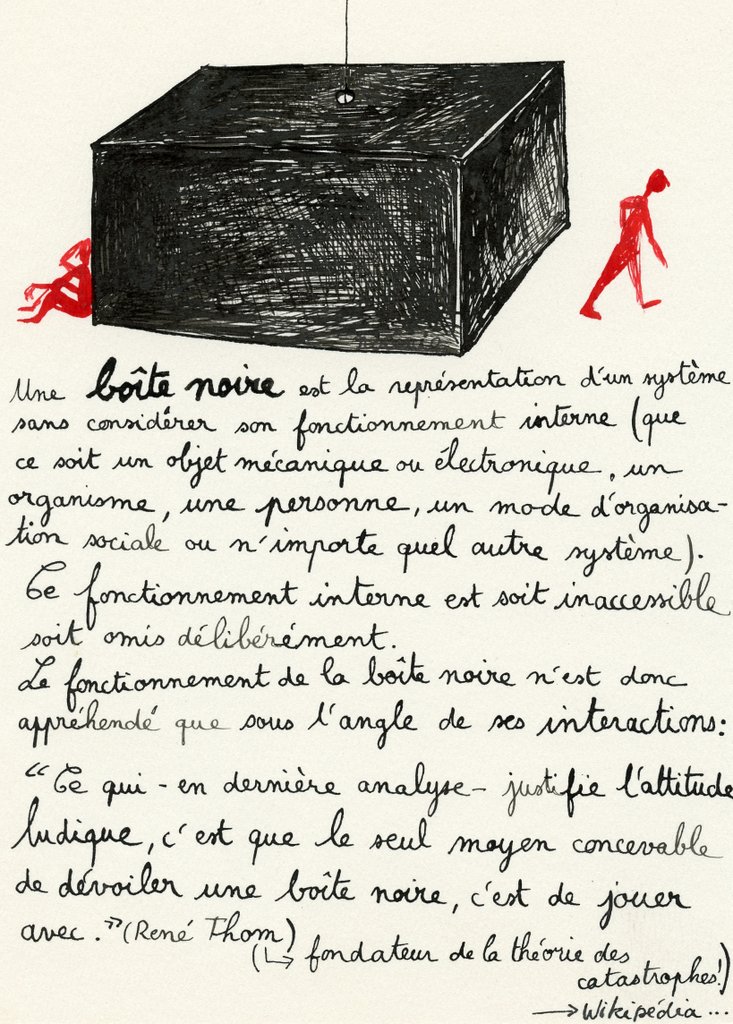 Une boîte noire est la représentation d'un système
sans considérer son fonctionnement interne (que
ce soit un objet mécanique ou électronique, un
organisme, une personne, un mode d'organisa-
tion sociale ou n'importe quel autre système).
Ce fonctionnement interne est soit inaccessible
soit omis délibérément.
Le fonctionnement de la boîte noire n'est donc
appréhendé que sous l'angle de ses interactions:
"Ce qui - en dernière analyse - justifie l'attitude
ludique, c'est que le seul moyen concevable
de dévoiler une boîte noire, c'est de jouer
avec." (René Thom)
(↳ fondateur de la théorie des
catastrophes!)
→ Wikipédia...